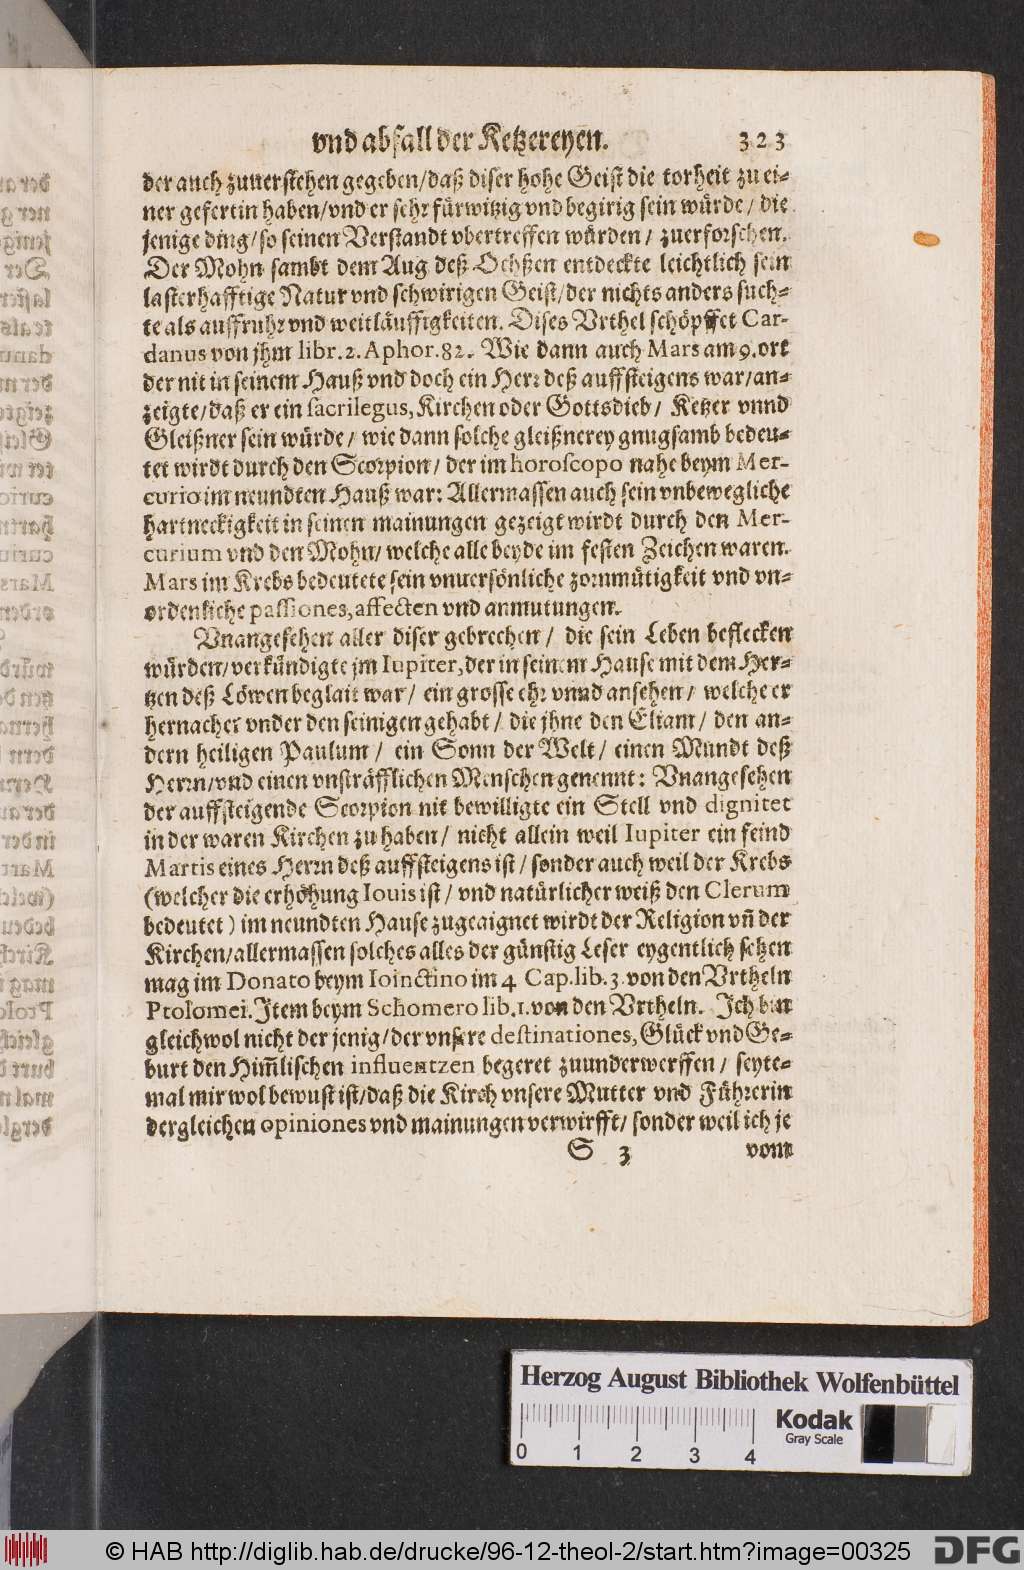 vnd abfall der Ketzereyen. 323
der auch zuuerstehen gegeben/daß diser hohe Geist die torheit zu ei-
ner gefertin haben/vnd er sehr fürwitzig vnd begirig sein würde/ die
jenige ding/so seinen Verstandt vbertreffen würden/ zuerforschen.
Der Mohn sambt dem Aug deß Ochßen entdeckte leichtlich sein
lasterhafftige Natur vnd schwirigen Geist/der nichts anders such-
te als auffruhr vnd weitläuffigkeiten. Dises Vrthel schöpffet Car-
danus von jhm libr.2.Aphor.82. Wie dann auch Mars am 9.ort
der nit in seinem Hauß vnd doch ein Herr deß auffsteigens war/an-
zeigte/daß er ein sacrilegus, Kirchen oder Gottsdieb/ Ketzer vnnd
Gleißner sein würde/ wie dann solche gleißnerey gnugsamb bedeu-
tet wirdt durch den Scorpion/ der im horoscopo nahe beym Mer-
curio im neundten Hauß war: Allermassen auch sein vnbewegliche
hartneckigkeit in seinen mainungen gezeigt wirdt durch den Mer-
curium vnd den Mohn/ welche alle beyde im festen Zeichen waren.
Mars im Krebs bedeutete sein vnuersönliche zornmütigkeit vnd vn-
ordenliche passiones, affecten vnd anmutungen.
Vnangesehen aller diser gebrechen/ die sein Leben beflecken
würden/verkündigte jm Iupiter, der in seinem Hause mit dem Her-
tzen deß Löwen beglait war/ ein grosse ehr vnnd ansehen/ welche er
hernacher vnder den seinigen gehabt/ die jhne den Eliam/ den an-
dern heiligen Paulum/ ein Sonn der Welt/ einen Mundt deß
Herrn/vnd einen vnsträfflichen Menschen genennt: Vnangesehen
der auffsteigende Scorpion nit bewilligte ein Stell vnd dignitet
in der waren Kirchen zu haben/ nicht allein weil Iupiter ein feind
Martis eines Herrn deß auffsteigens ist/ sonder auch weil der Krebs
(welcher die erhöhung Iouis ist/ vnd natürlicher weiß den Clerum
bedeutet) im neundten Hause zugeaignet wirdt der Religion vn̄ der
Kirchen/allermassen solches alles der günstig Leser eygentlich sehen
mag im Donato beym Ioinctino im 4 Cap.lib.3 von den Vrtheln
Ptolomei. Item beym Schomero lib.1. von den Vrtheln. Ich bin
gleichwol nicht der jenig/der vnsere destinationes, Glück vnd Ge-
burt den Him̄lischen influentzen begeret zuunderwerffen/ seyte-
mal mir wol bewust ist/daß die Kirch vnsere Mutter vnd Führerin
dergleichen opiniones vnd mainungen verwirfft/ sonder weil ich je
S 3 vom
Herzog August Bibliothek Wolfenbüttel
0 1 2 3 4
Kodak
Gray Scale
© HAB http://diglib.hab.de/drucke/96-12-theol-2/start.htm?image=00325
DFG